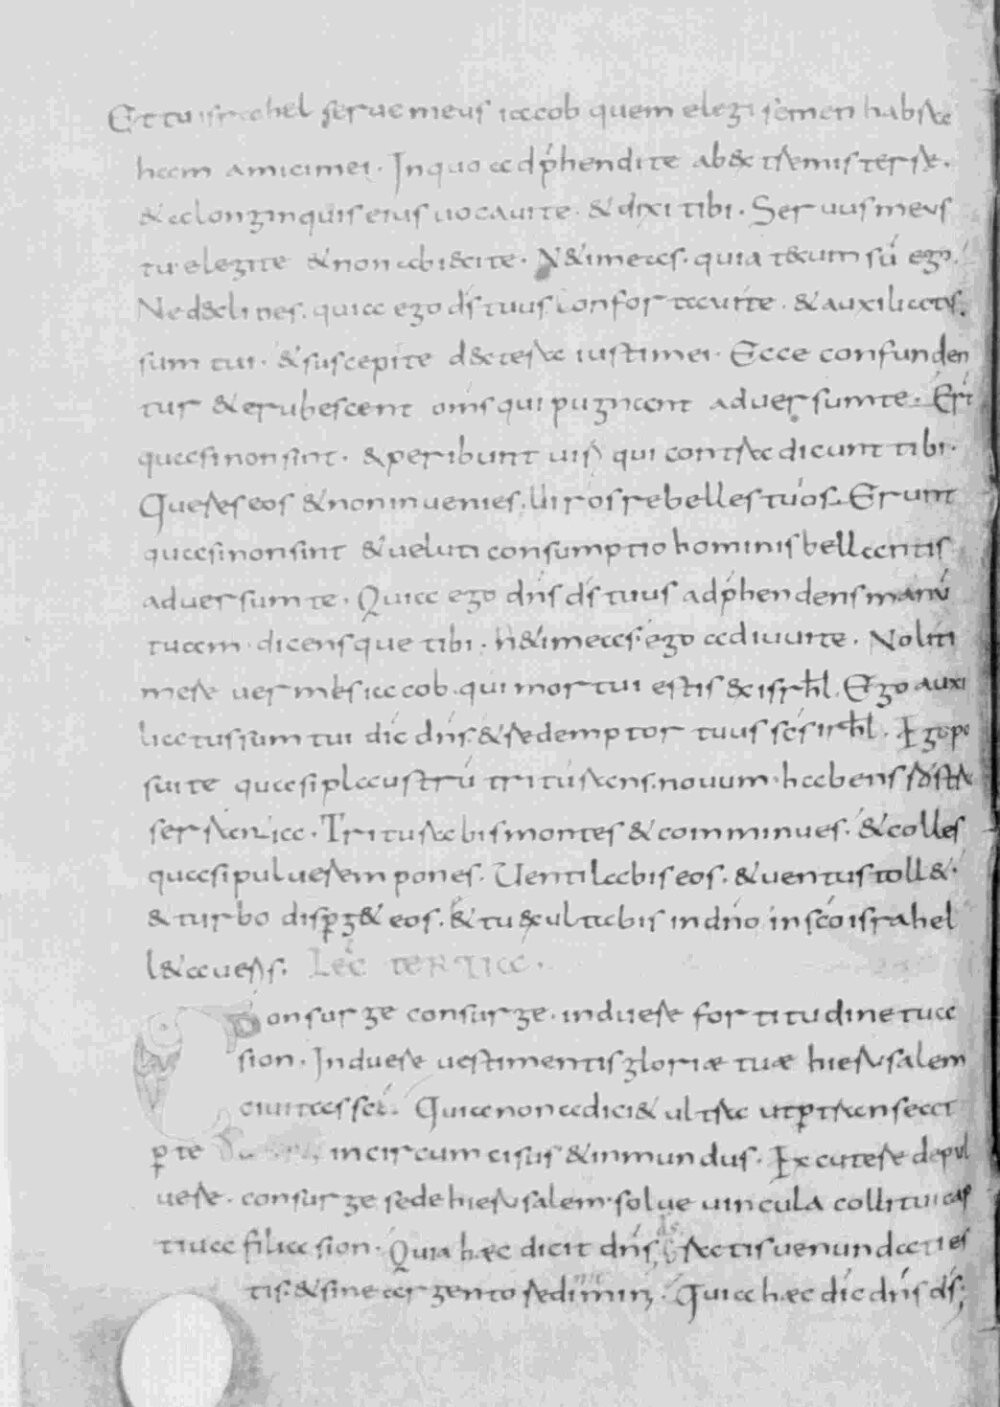 Et tu israhel serue meus iacob quem elegi semen habra
ham amici mei. In quo adp̄hendi te ab extremis terre.
& a longinquis eius uocaui te. & dixi tibi. Seruus meus
tu. elegi te & non abieci te. Ne timeas. quia tecum sū ego.
Ne declines. quia ego d̄s tuus. Confortaui te. & auxiliatus.
sum tui. & suscepi te dextera iusti mei. Ecce confunden
tur & erubescent om̄s qui pugnant aduersum te. Erī
quasi non sint. & peribunt uiri qui contra dicunt tibi.
Queres eos & non inuenies. Uiros rebelles tuos. Erunt
quasi non sint & ueluti consumptio hominis bellantis
aduersum te. Quia ego dn̄s d̄s tuus adp̄hendens manū
tuam. dicensque tibi. ne timeas. ego adiuui te. Noli ti
mere uermis iacob. qui mortui estis ex isrh̄l. Ego auxi
liatus sum tui dic̄ dn̄s. & redemptor tuus sc̄s isrh̄l. Ego po
sui te quasi plaustrū triturans. nouum. habens rostra
serrantia. Triturabis montes & comminues. & colles
quasi puluerem pones. Uentilabis eos. & uentus toll&.
& turbo disp̄g& eos. & tu exultabis in dn̄o in sc̄o israhel
l&aueris. Lec̄ tertia.
Consurge consurge. induere fortitudine tua
sion. Induere uestimentis gloriæ tuæ hierusalem
ciuitas sc̄i. Quia non adici& ultra ut p̄transeat
p̄ te incircumcisus & inmundus. Excutere depul
uere. consurge sede hierusalem. solue uincula colli tui cap
tiua filia sion. Quia hæc dicit dn̄s, d̄s Gratis uenundati es
tis. & sine argento redimini. Quia hæc dic̄ dn̄s d̄s;